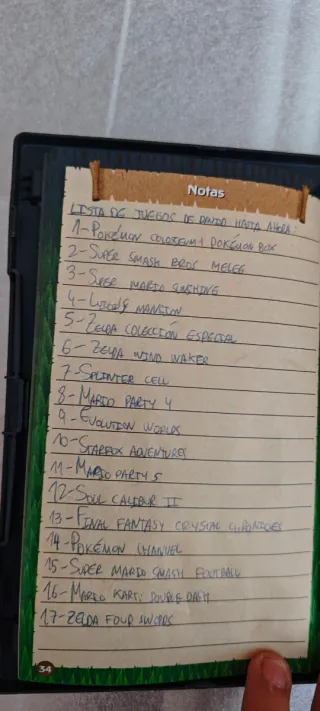 Notas
LISTA DE JUEGOS DE DAVID HASTA AHORA:
1-POKÉMON COLOSEUM + POKÉMON BOX
2-SUPER SMASH BROS MELEE
3-SUPER MARIO SUNSHINE
4-LUIGI'S MANSION
5-ZELDA COLECCIÓN ESPECIAL
6-ZELDA WIND WAKER
7-SPLINTER CELL
8-MARIO PARTY 4
9-EVOLUTION WORLDS
10-STARFOX ADVENTURES
11-MARIO PARTY 5
12-SOUL CALIBUR II
13-FINAL FANTASY CRYSTAL CHRONICLES
14-POKÉMON CHANNEL
15-SUPER MARIO SMASH FOOTBALL
16-MARIO KART: DOUBLE DASH
17-ZELDA FOUR SWORDS
34